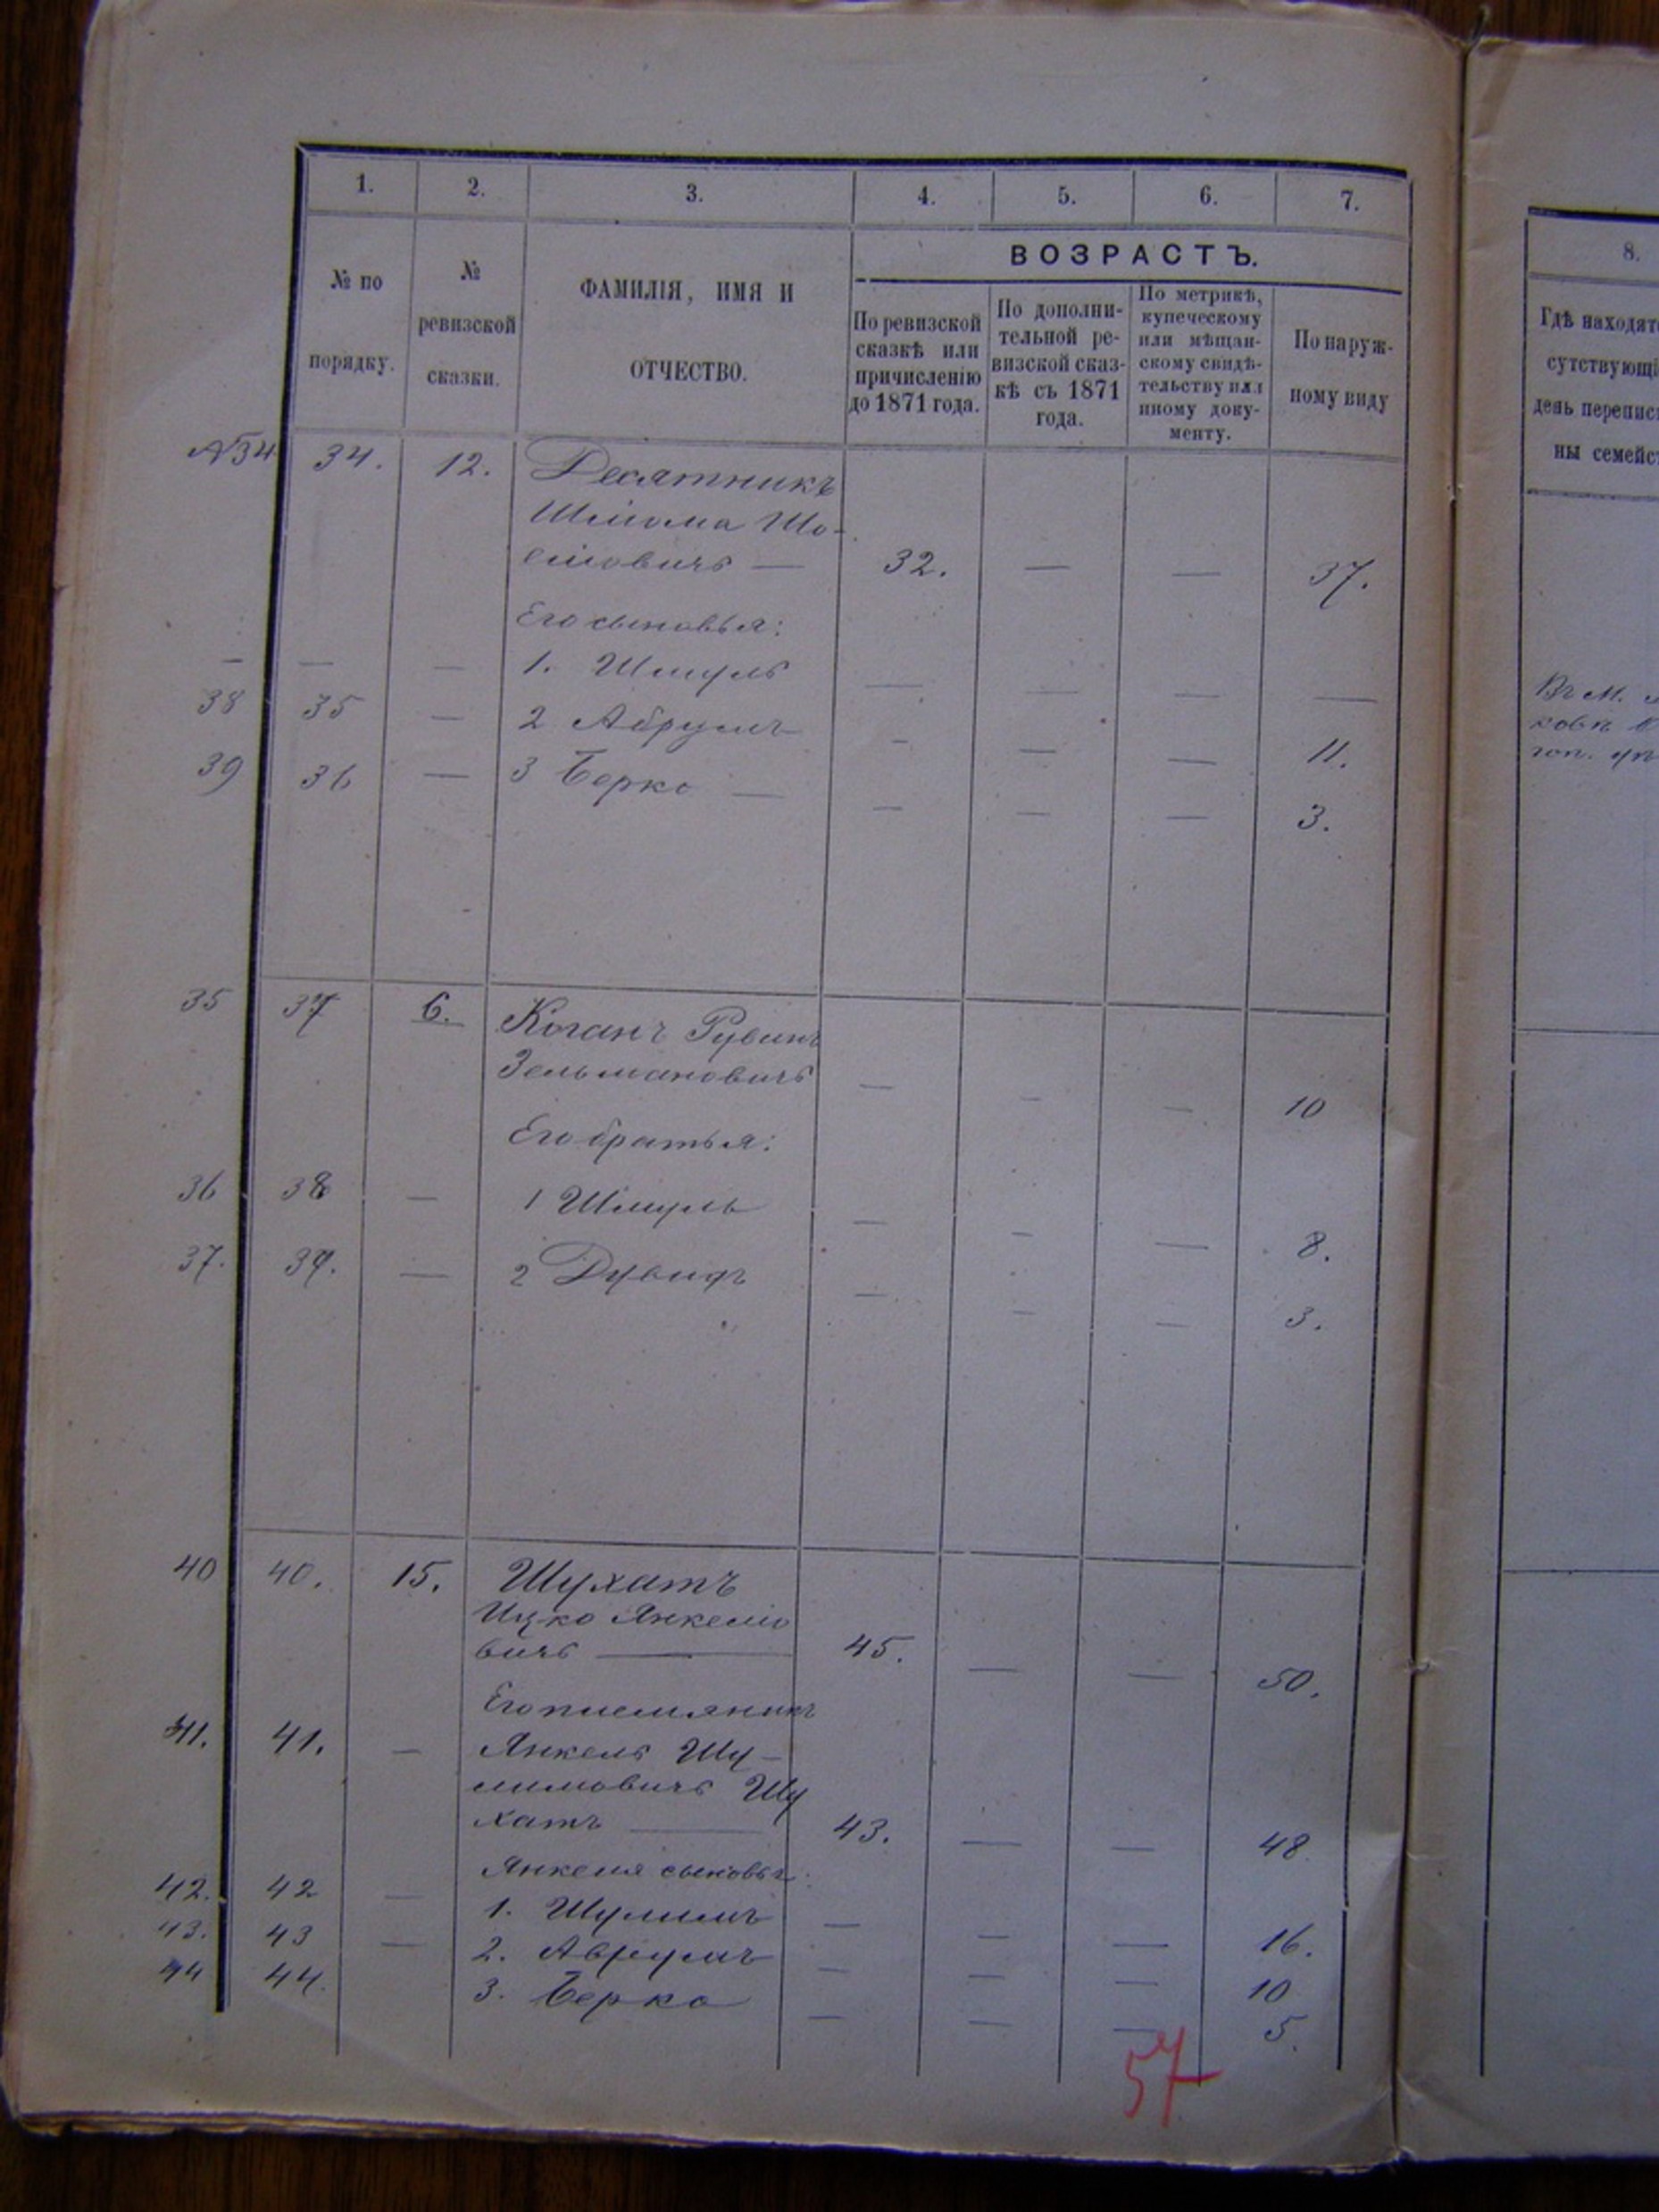 1. 2. 3. 4. 5. 6. 7.
№ по порядку.
№ ревизской сказки.
ФАМИЛІЯ, ИМЯ И ОТЧЕСТВО.
ВОЗРАСТЪ.
По ревизской сказкѣ или причисленію до 1871 года.
По дополни-
тельной ре-
визской сказ-
кѣ съ 1871 года.
По метрикѣ, купеческому или мѣщан-
скому свидѣ-
тельству или иному доку-
менту.
По наруж-
ному виду
№34 34. 12. Десятникъ
Шліома Шо-
еліовичъ — 32. — — 37.
Его сыновья:
— — — 1. Шмуль — — — —
38 35 — 2 Абрумъ — — — 11.
39 36 — 3 Берко — — — — 3.
35 37 6. Коганъ Рувинъ
Зельмановичъ — — — 10
Его братья:
36 38 — 1 Шмуль — — — 8.
37. 39. — 2 Дувидъ — — — 3.
40 40. 15. Шухатъ
Ицко Янкеліо
вичъ — 45. — — 50.
Его племянникъ
41. 41. — Янкель Шу-
лимовичъ Шу
хатъ — 43. — — 48.
Янкеля сыновья:
42. 42 — 1. Шулимъ — — — 16.
43. 43 — 2. Аврумъ — — — 10
44 44. 3. Берко — — — 5.
57
8.
Гдѣ находят
сутствующі
день перепис
ны семейс
Въ м.